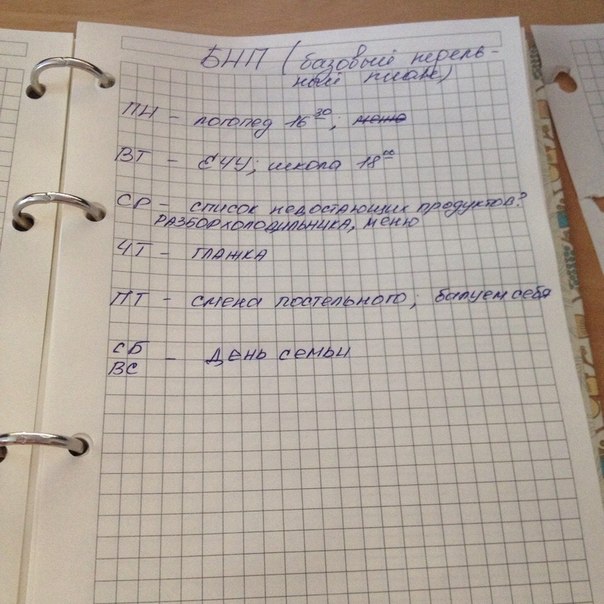 БНП (базовый недель-
ный план)
ПН - логопед 16 30; меню
ВТ - ЕЧУ; школа 18 00
СР - список недостающих продуктов?
РАЗБОР ХОЛОДИЛЬНИКА, МЕНЮ
ЧТ - глажка
ПТ - смена постельного; балуем себя
СБ
ВС - День семьи